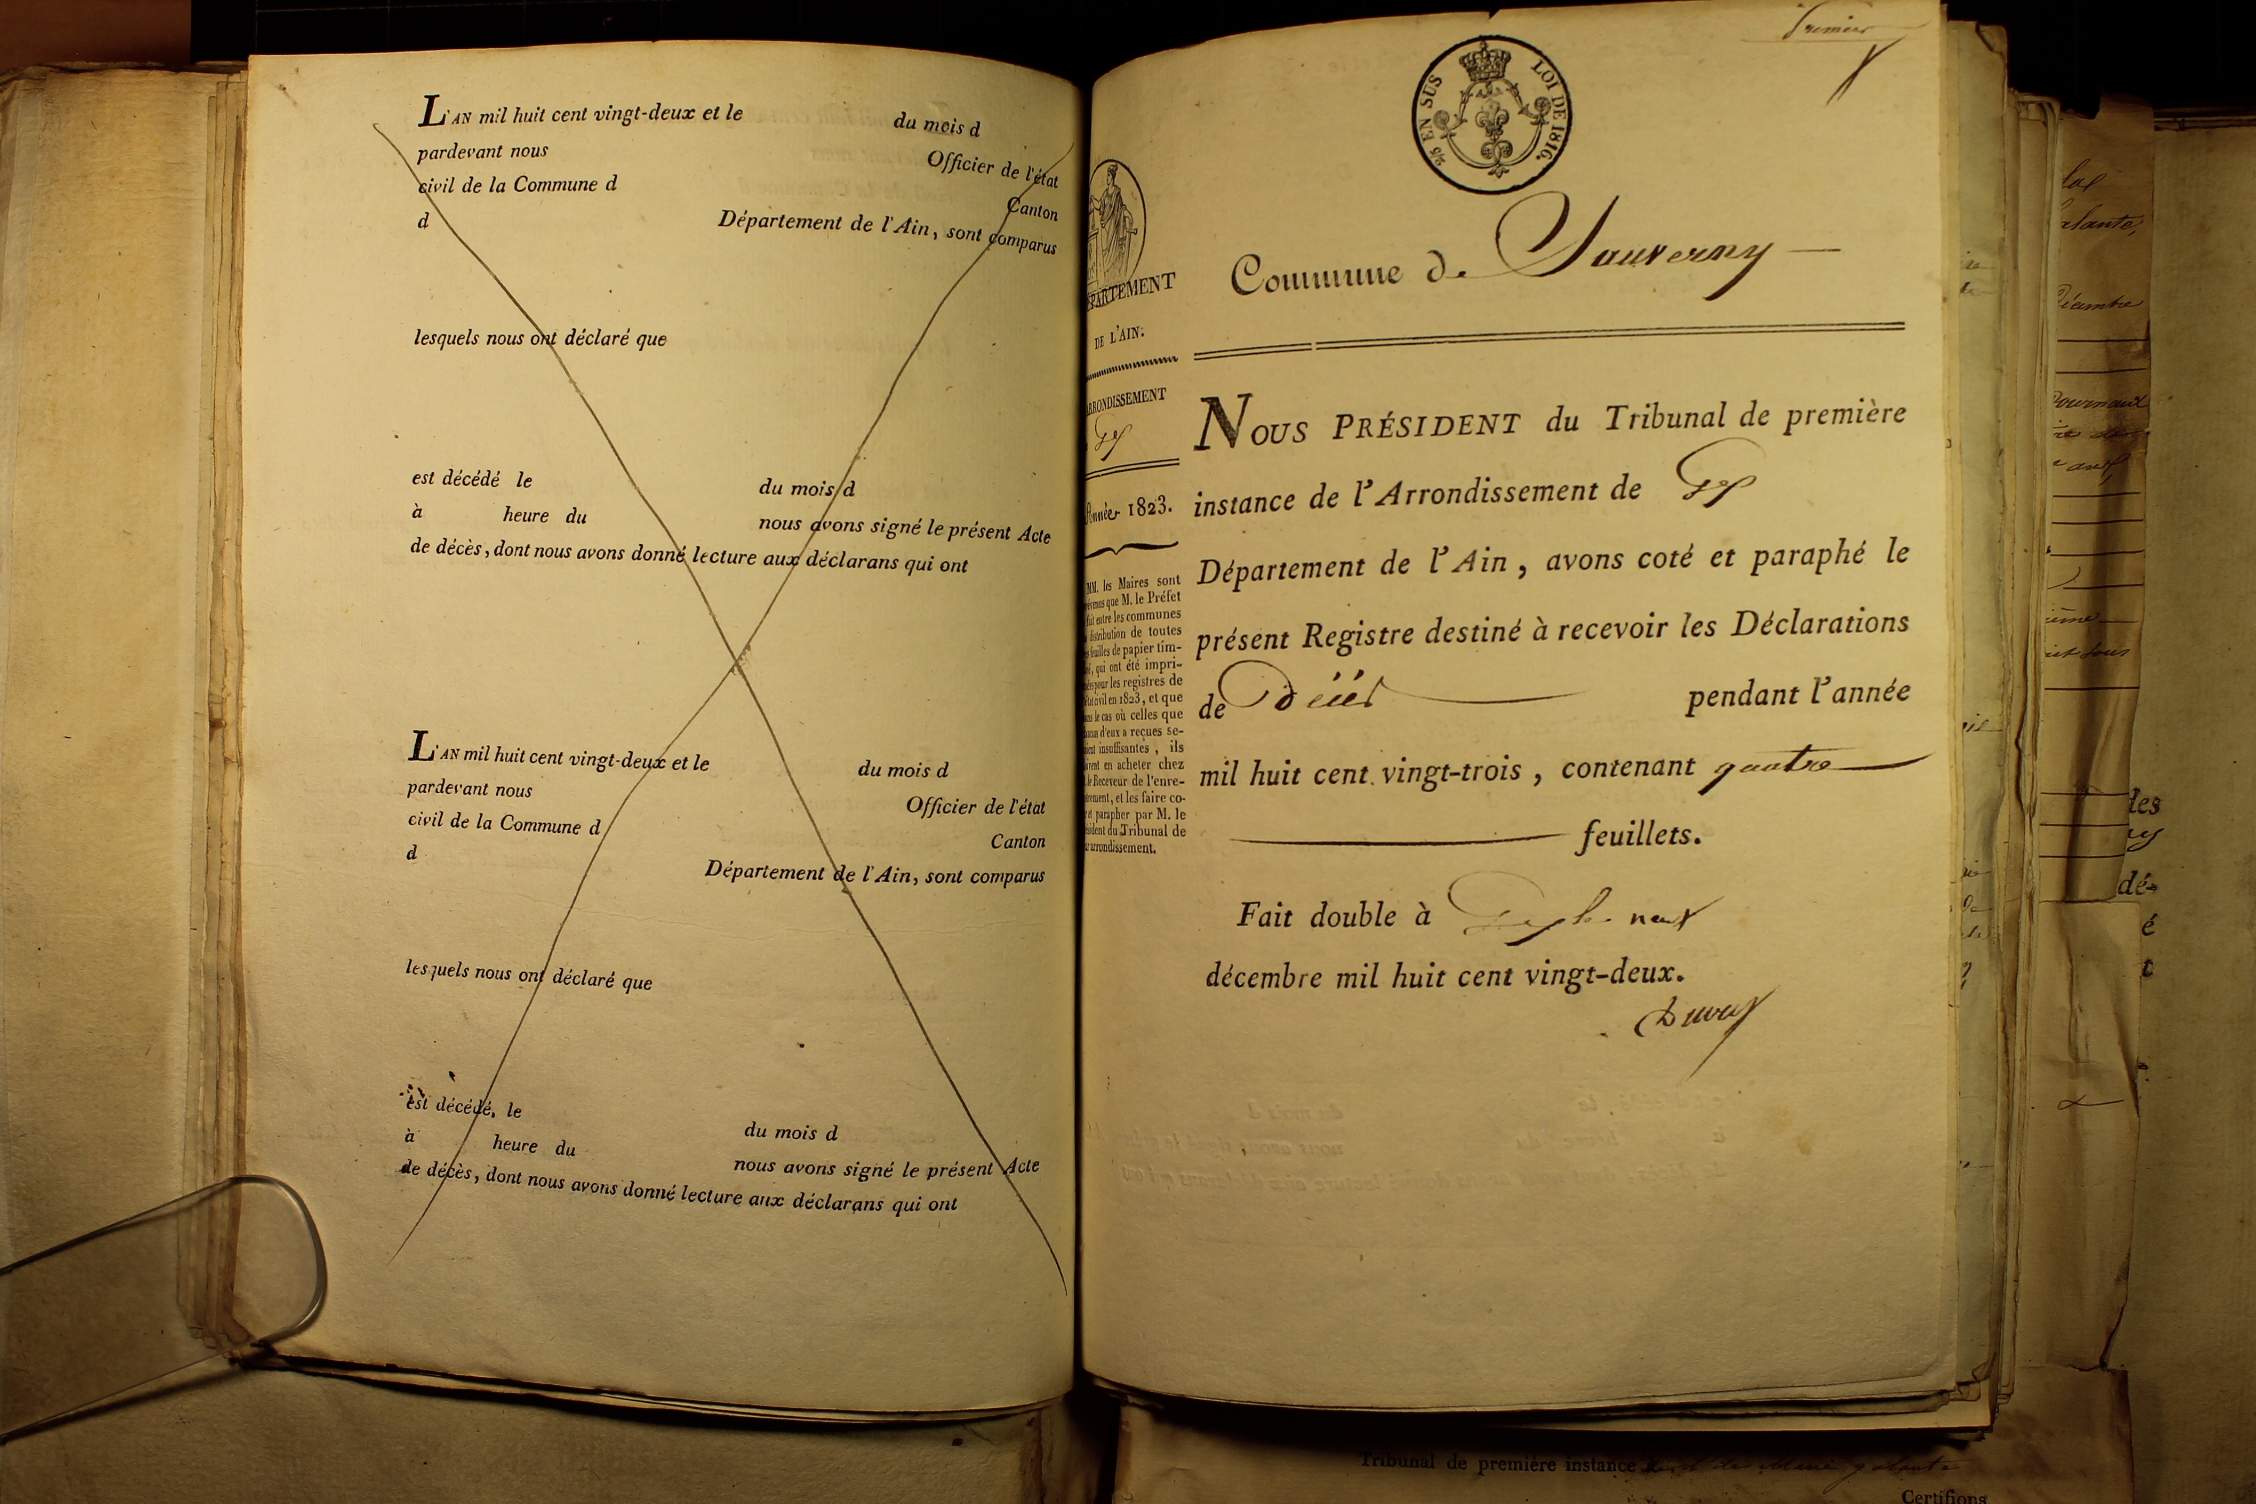 L'AN mil huit cent vingt-deux et le du mois d
pardevant nous Officier de l'état
civil de la Commune d Canton
d Département de l'Ain, sont comparus
lesquels nous ont déclaré que
est décédé le du mois d
à heure du nous avons signé le présent Acte
de décès, dont nous avons donné lecture aux déclarans qui ont
L'AN mil huit cent vingt-deux et le du mois d
pardevant nous Officier de l'état
civil de la Commune d Canton
d Département de l'Ain, sont comparus
lesquels nous ont déclaré que
est décédé, le du mois d
à heure du nous avons signé le présent Acte
de décès, dont nous avons donné lecture aux déclarans qui ont
Premier
25 EN SUS LOI DE 1816.
DE L'AIN.
Gex
Année 1823.
MM. les Maires sont
que M. le Préfet
entre les communes
distribution de toutes
feuilles de papier tim-
qui ont été impri-
pour les registres de
civil en 1823, et que
le cas où celles que
d'eux a reçues se-
insuffisantes, ils
en acheter chez
le Receveur de l'enre-
et les faire co-
parapher par M. le
du Tribunal de
arrondissement.
Commune de Sauverny
NOUS PRÉSIDENT du Tribunal de première
instance de l'Arrondissement de Gex
Département de l'Ain, avons coté et paraphé le
présent Registre destiné à recevoir les Déclarations
de Décès pendant l'année
mil huit cent vingt-trois, contenant quatre
feuillets.
Fait double à Gex le neuf
décembre mil huit cent vingt-deux.
Tribunal de première instance
Certifions